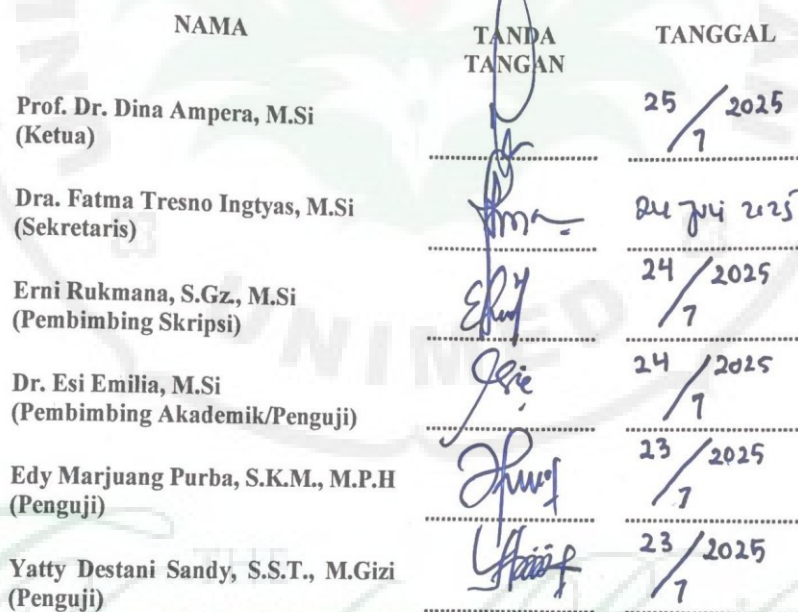 NAMA
TANDA TANGAN
TANGGAL
Prof. Dr. Dina Ampera, M.Si
(Ketua)
25/7 2025
Dra. Fatma Tresno Ingtyas, M.Si
(Sekretaris)
24 Juli 2025
Erni Rukmana, S.Gz., M.Si
(Pembimbing Skripsi)
24/7 2025
Dr. Esi Emilia, M.Si
(Pembimbing Akademik/Penguji)
24/7 2025
Edy Marjuang Purba, S.K.M., M.P.H
(Penguji)
23/7 2025
Yatty Destani Sandy, S.S.T., M.Gizi
(Penguji)
23/7 2025
UNIMED
THE